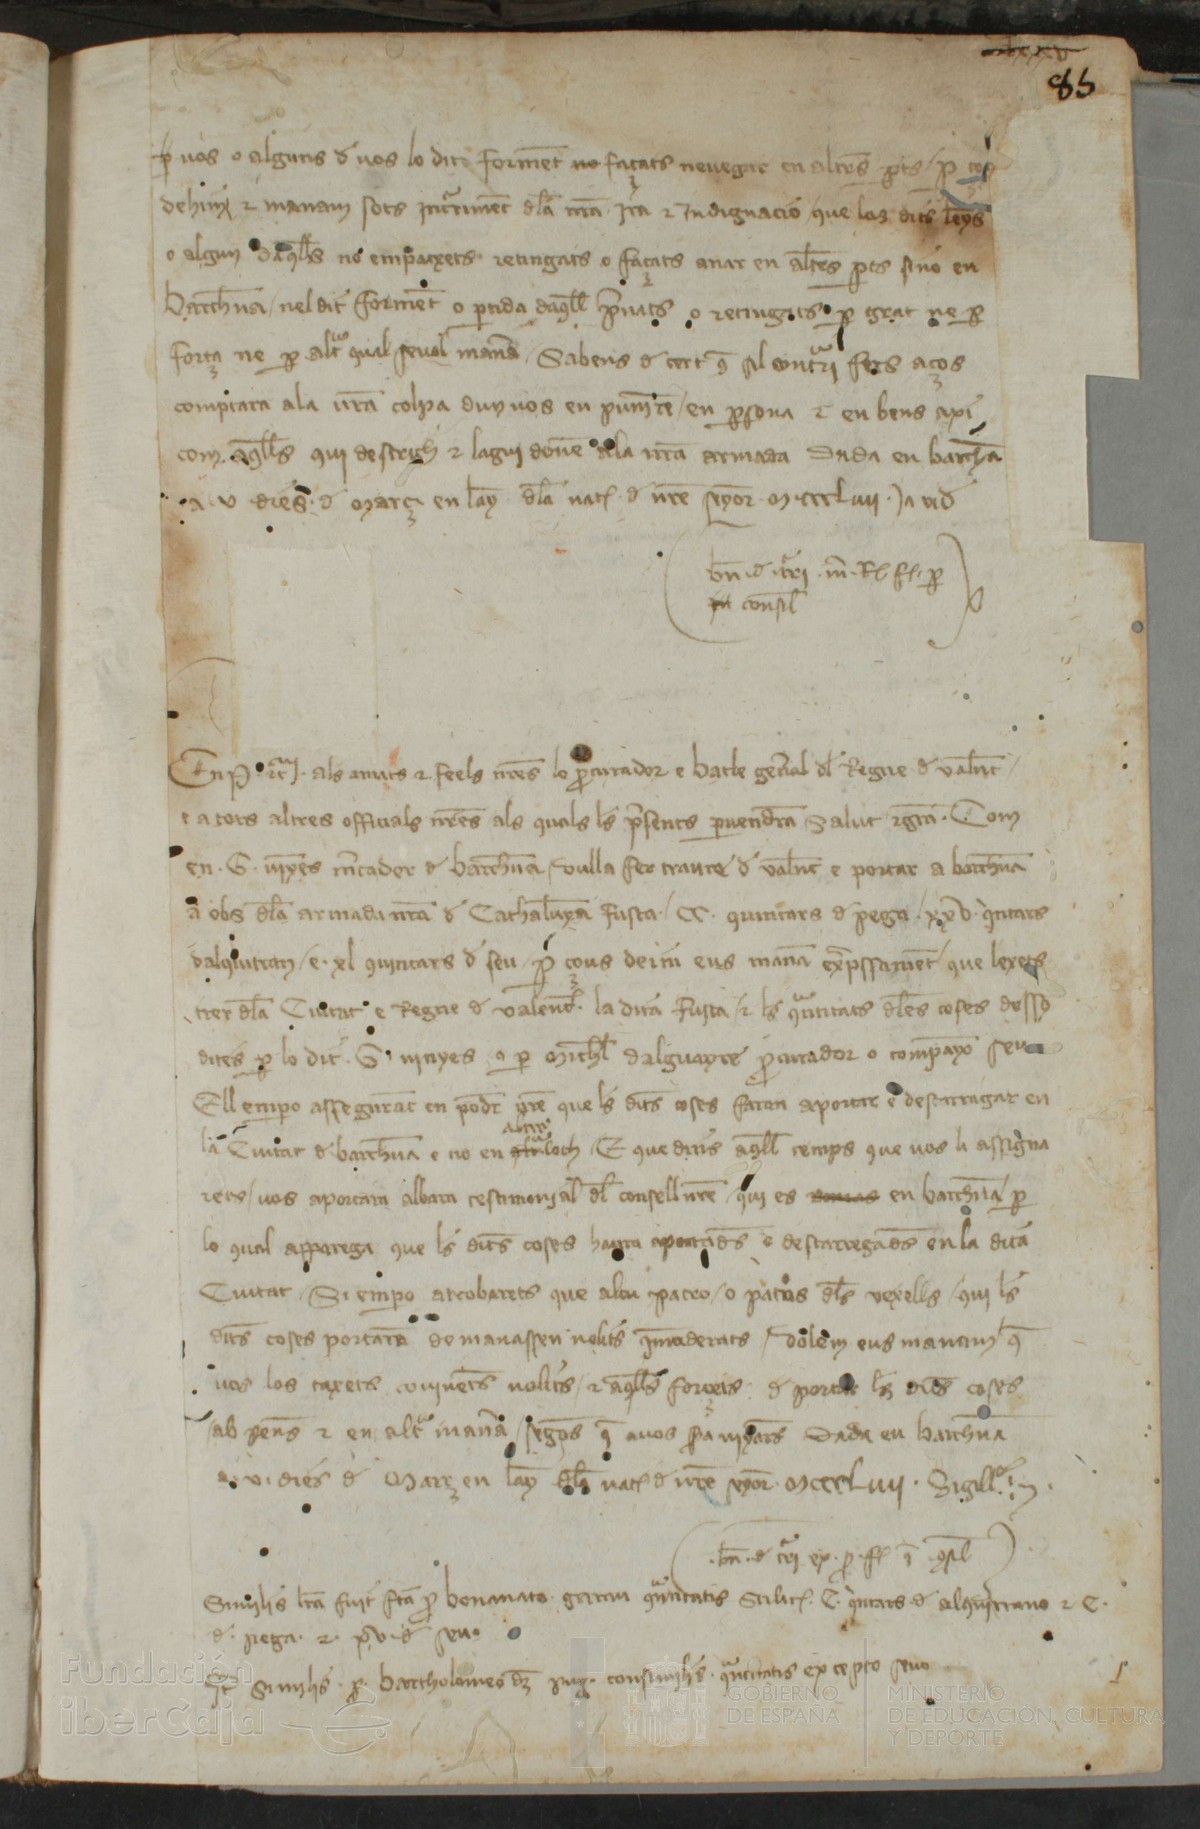 85
p vos o alguns d vos lo dit forment no façats nevegar en altres pts / p ço
dehim e manam sots incorriment dla nra ira e indignacio que los dits leys
o algun daqlls no empatxets retingats o façats anar en altres pts sino en
barchna / nel dit forment o ptida daqll prenats o retingats p grat ne p
força ne p altra qual sevol mana Sabens d cert q sil contrari fets aços
comptara ala vra colpa dun vos en punire / en psona e en bens axi
com aqlls qui destrich e lagui donen ala nra armada Dada en barchna
a v dies d març en lany dla nat d nre senyor M CCCLVII
consil
als amats e feels nres lo pcurador e batle general dl Regne d valnc
e a tots altres officials nres als quals ls presents pvendra Salut e gra Com
en G vinyes mcader d barchna vulla fer traure d valnc e portar a barchna
a obs dla armada nra d Cathalunya fusta CC quintars d pega XXV qintars
dalquitran / e XL quintars d seu / p çous deim eus mana expssament que lexets
trer dla Ciutat e Regne d valenc la dita fusta / e ls quantitats dles coses desso
dites p lo dit G vinyes o p Michl dalguayre pcurador o companyo seu
Ell empo assegurat en podr vre que ls dits coses fara aportar e descarragar en
la Ciutat d barchna e no en altre loch E que dins aqll temps que vos li assigna
rets / vos aportara albara testimonial dl consell nre qui es en barchna p
lo qual apparega que ls dits coses haura aportads e descarregads en la dita
Ciutat Si empo atrobavets que algu patro / o patrons dls vexells qui ls
dits coses portara demanassen nolits inmoderats Volem eus manam q
vos los taxets covinents nolits e aqlls forcets d portar ls dits coses
ab pens e en altra mana segons q a vos pa vijars Dada en barchna
a v dies d Març en lany dla nat d nre senyor MCCCLVII Sigill
Similis lra fuit fca p bonanato quantitatis C qintars d alquitrano e C
d pega e d seu
It Similis p Bartholomeo dz puig consimilis quantitatis excepto sevo
Fundación
iberCaja
GOBIERNO
DE ESPAÑA
MINISTERIO
DE EDUCACIÓN, CULTURA
Y DEPORTE